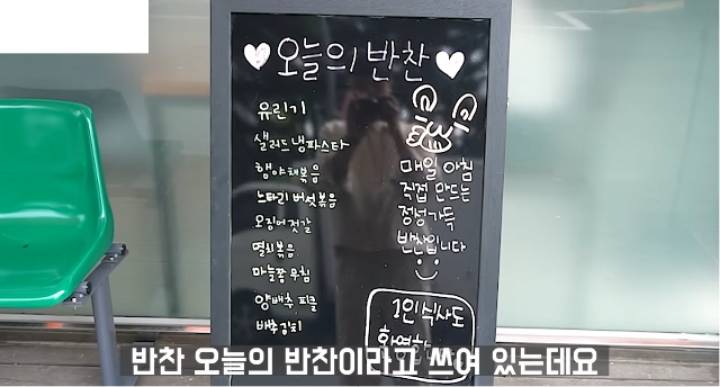 오늘의 반찬
유린기
샐러드 냉파스타
햄야채볶음
느타리 버섯볶음
오징어젓갈
멸치볶음
마늘쫑무침
양배추 피클
배추김치
매일 아침
직접 만드는
정성가득
반찬입니다
1인 식사도
반찬 오늘의 반찬이라고 쓰여 있는데요